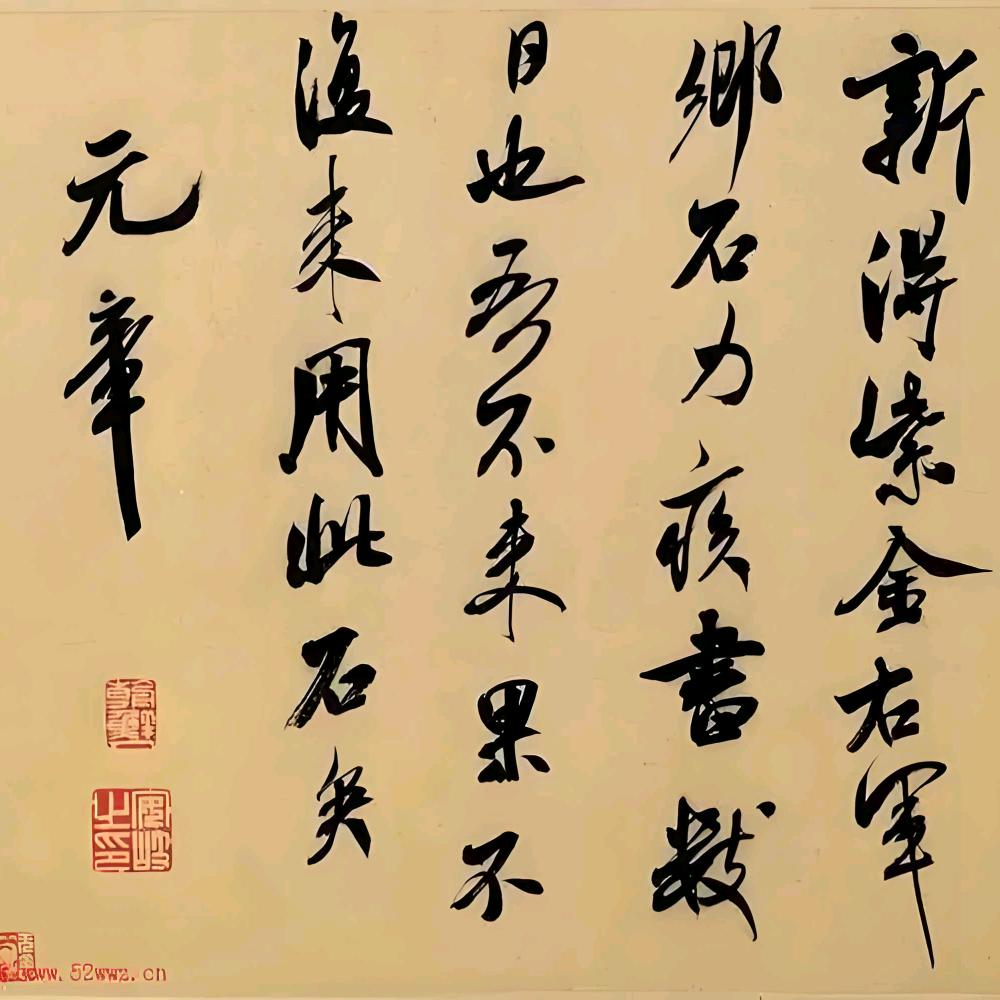 新得紫金右軍
鄉石力疾書數
日也吾不來果不
復來用此石矣
元章
www.52wwz.cn